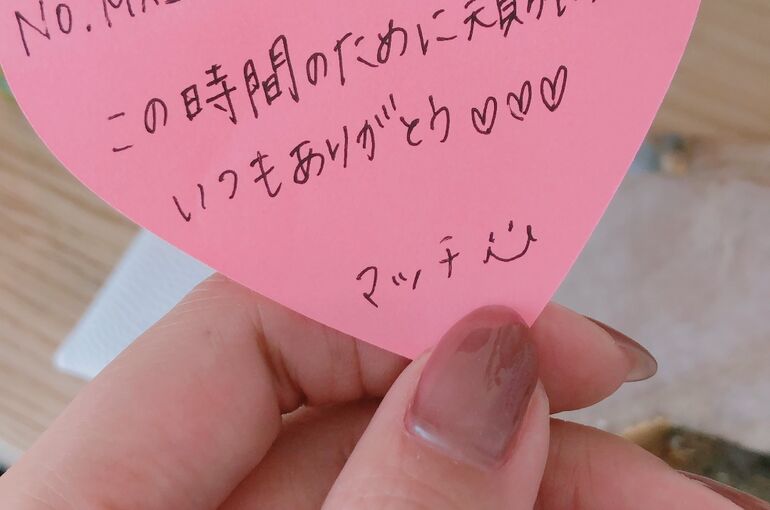 No.
この時間のために
いつもありがとう♡♡♡
マッチ